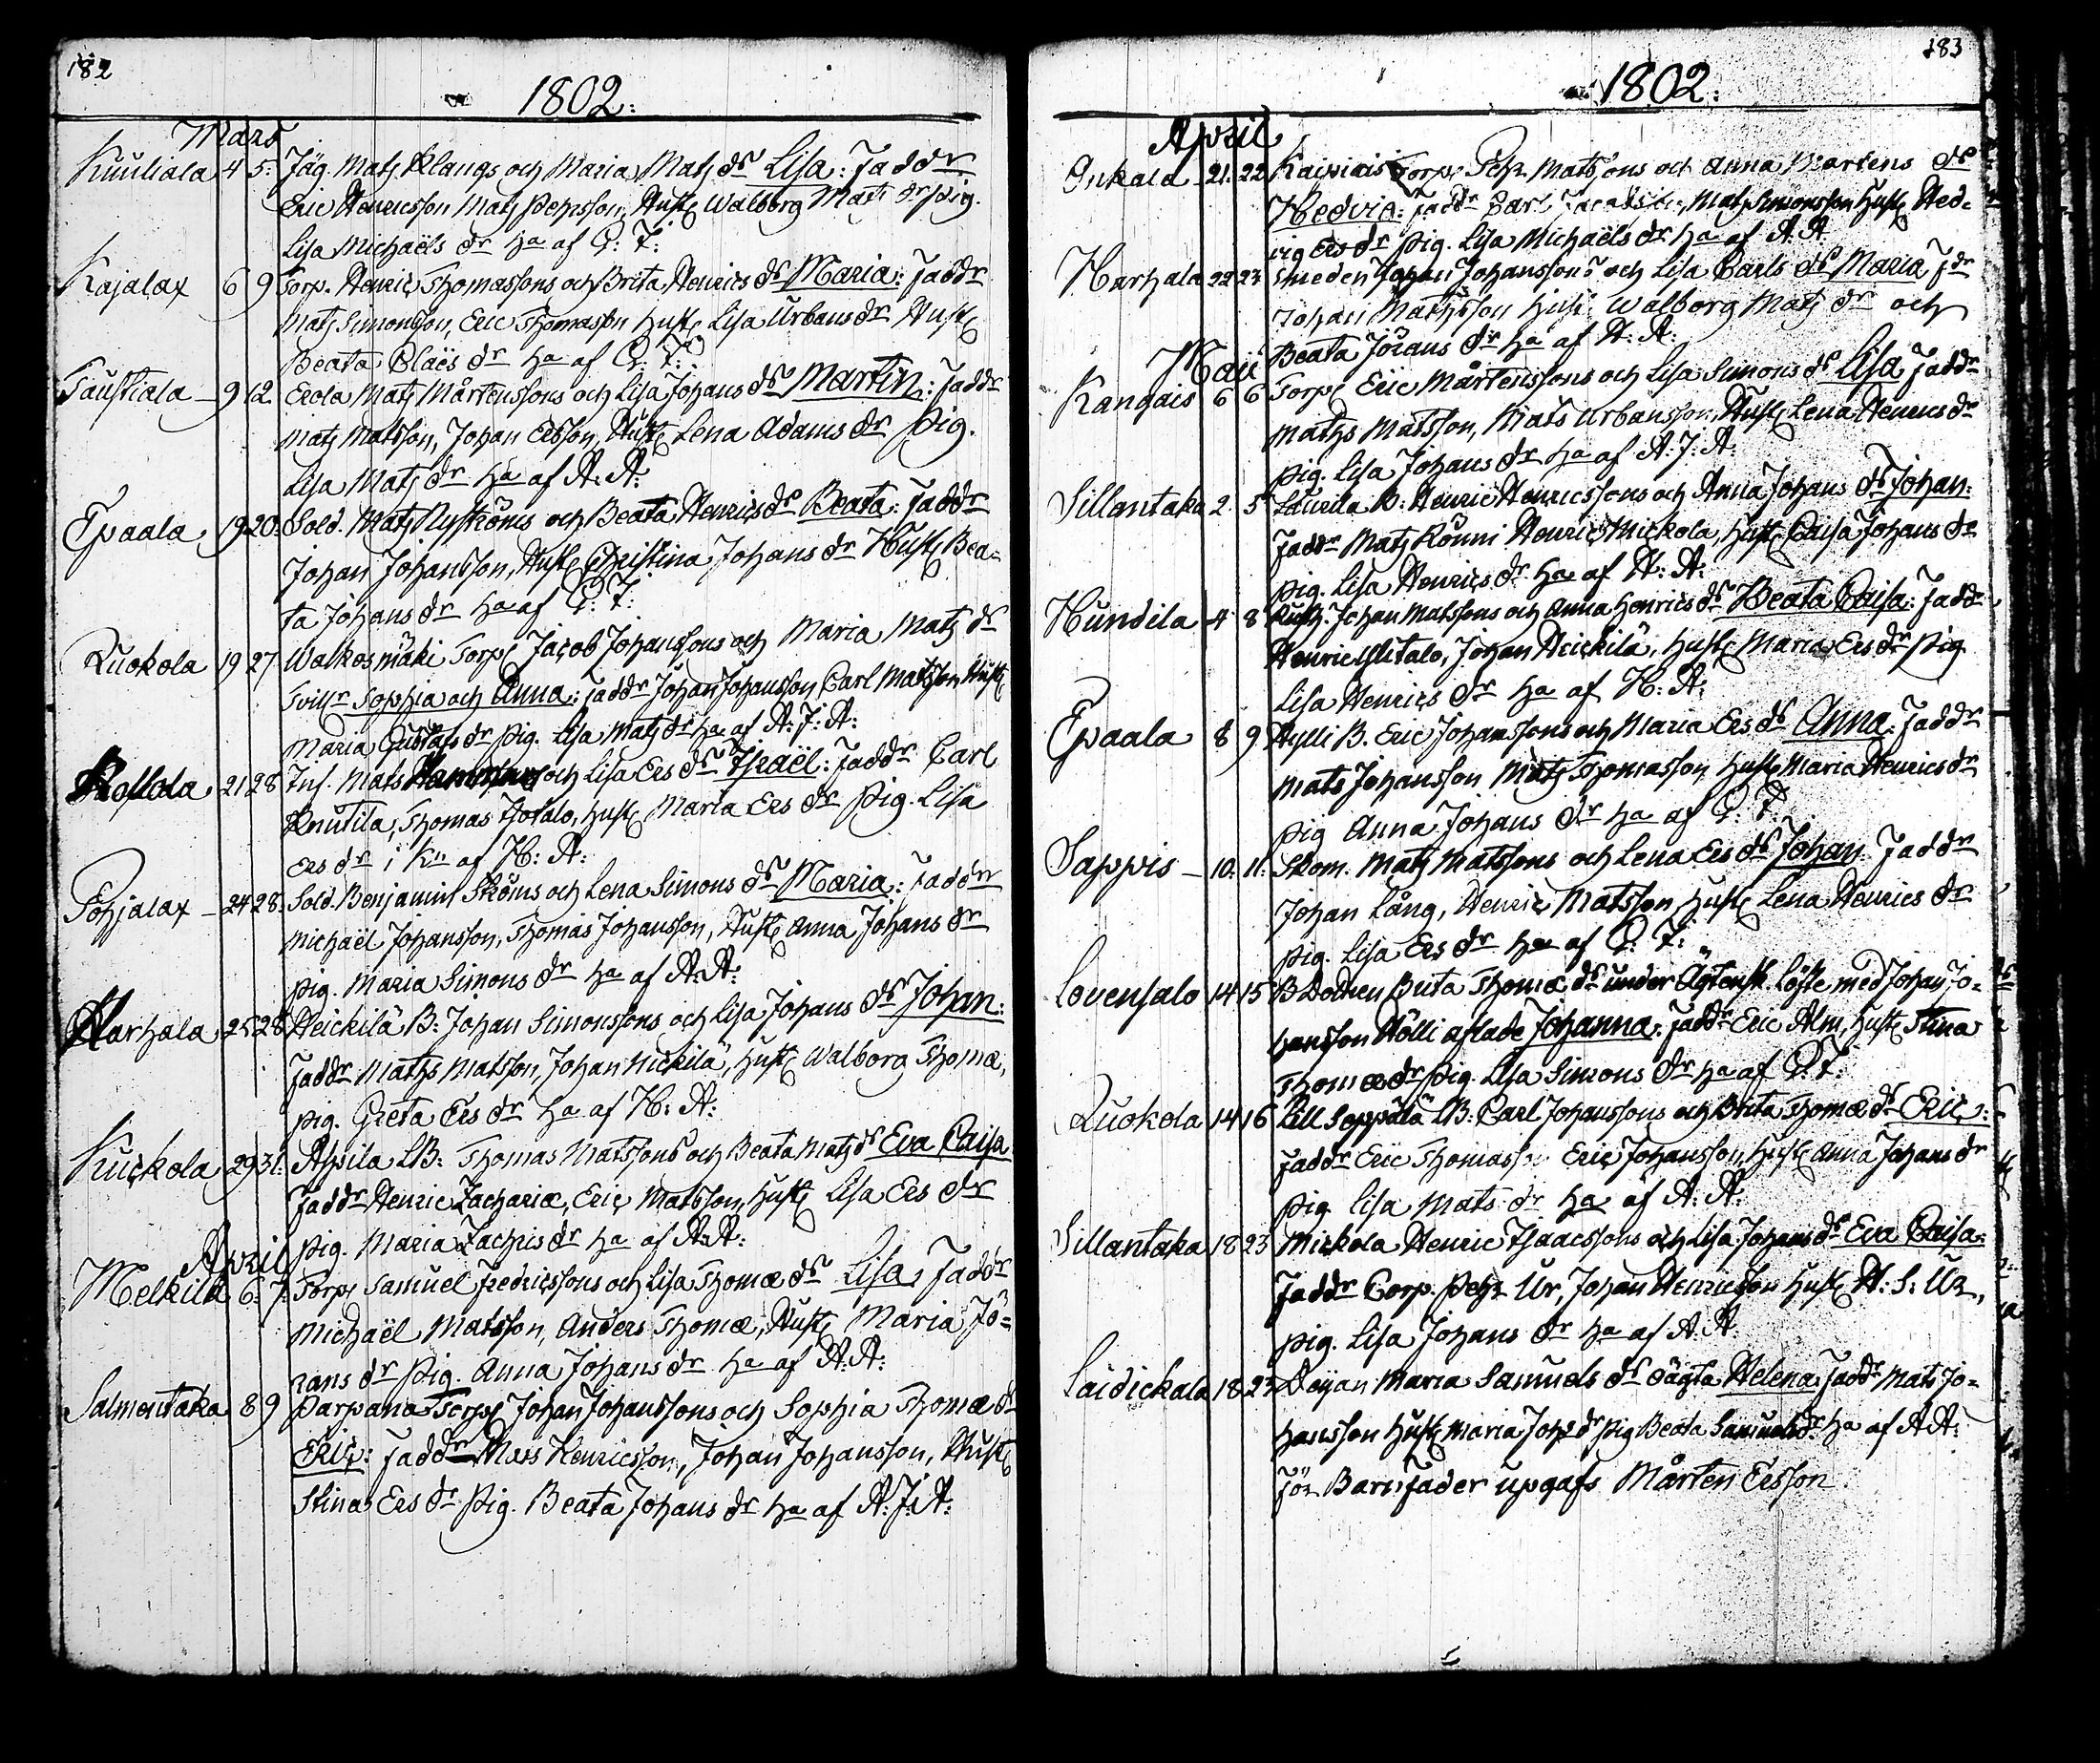 182
1802:
Mars
Kuuliala 4 5. Jäg. Mats Klangs och Maria Mats dr Lisa: Faddr
Eric Henricsson Mats Pehrsson, Hust. Walborg Mats dr pig.
Lisa Michaëls dr ha af C: F:
Kajalax 6 9 Torp. Henric Thomassons och Brita Henrics dr Maria: Faddr
Mats Simonsson, Eric Thomasson Hust. Lisa Urbans dr Hust.
Beata Claës dr ha af C: F:
Taustiala 9 12 Erola Mats Mårtenssons och Lisa Johans dr Martin: Faddr
Mats Matsson, Johan Ersson, Hust. Lena Adams dr Pig.
Lisa Mats dr ha af A: A:
Epaala 19 20. Sold. Mats Nyströms och Beata Henrics dr Beata: Faddr
Johan Johansson, Hust. Christina Johans dr Hust. Bea-
ta Johans dr ha af C: F:
Ruokola 19 27 Walkosmäki Torp. Jacob Johanssons och Maria Mats dr
Tvillr Sophia och Anna: Faddr Johan Johansson Carl Matsson Hust.
Maria Gustafs dr pig. Lisa Mats dr ha af A: J: A:
21 28 Inh. Mats och Lisa Ers dr Israël: Faddr Carl
Knutila, Thomas Isotalo, Hust. Maria Ers dr Pig. Lisa
Ers dr i Kn af H: A:
Pohjalax 24 28. Sold. Benjamin Ströms och Lena Simons dr Maria: Faddr
Michaël Johansson, Thomas Johansson, Hust. Anna Johans dr
pig. Maria Simons dr ha af A: A:
Harhala 25 28 Heickilä B: Johan Simonssons och Lisa Johans dr Johan:
Faddr Maths Matsson, Johan Heickilä, Hust. Walborg Thomæ,
pig. Greta Ers dr ha af H: A:
Kuckola 29 31. Ahsila LB: Thomas Matssons och Beata Mats dr Eva Caisa
Faddr Henric Zachariæ, Eric Matsson, Hust. Lisa Ers dr
pig. Maria Zachris dr ha af A: A:
April
Melkila 6. 7. Torp. Samuel Fredricssons och Lisa Thomæ dr Lisa, Faddr
Michaël Matsson, Anders Thomæ, Hust. Maria Jö-
rans dr Pig. Anna Johans dr ha af A: A:
Salmentaka 8 9 Parpana Torp. Johan Johanssons och Sophia Thomæ dr
Eric: Faddr Mats Henricsson, Johan Johansson, Hust.
Stina Ers dr Pig. Beata Johans dr ha af A: J: A:
183
1802:
April
Onkala 21. 22 Torp. Pehr Matssons och Anna Mårtens dr
Hedvig: Faddr Carl Mats Simonsson Hust. Hed-
vig Ers dr Pig. Lisa Michaëls dr ha af A A
Harhala 22 23 Smeden Johan Johanssons och Lisa Carls dr Maria Fdr
Johan Mathsson Hust. Walborg Mats dr och
Beata Jörans dr ha af A: A:
Maii
Kangais 6 6 Torp. Eric Mårtenssons och Lisa Simons dr Lisa Faddr
Maths Matsson, Mats Urbansson, Hust. Lena Henrics dr
pig. Lisa Johans dr ha af A: J: A:
Sillantaka 2. 5 Laurila B: Henric Henricssons och Anna Johans dr Johan:
Faddr Mats Rönni Henric Mickola, Hust. Caisa Johans dr
pig. Lisa Henrics dr ha af A: A:
Hundila 4 8 Rusth. Johan Matssons och Anna Henrics dr Beata Caisa: Faddr
Henric Ylitalo, Johan Heickilä, Hust. Maria Ers dr Pig
Lisa Henrics dr ha af H: A:
Epaala 8 9 Hylli B. Eric Johanssons och Maria Ers dr Anna: Faddr
Mats Johansson Mats Thomasson, Hust. Maria Henrics dr
pig Anna Johans dr ha af C: F:
Sappis 10. 11. Skom. Mats Matssons och Lena Ers dr Johan: Faddr
Johan Lång, Henric Matsson, Hust. Lena Henrics dr
pig. Lisa Ers dr ha af C: F:
Lovensalo 14 15 B Dottren Brita Thomæ dr under Ägtensk. Löfte med Johan Jo-
hansson Hölli aflade Johanna: Faddr Eric Alm, Hust. Stina
Thomæ dr pig. Lisa Simons dr ha af C: F:
Ruokola 14 16 Lill Seppälä LB: Carl Johanssons och Brita Thomæ dr Eric:
Faddr Eric Thomasson Eric Johansson, Hust. Anna Johans dr
pig. Lisa Mats dr ha af A: A:
Sillantaka 18 23 Mickola Henric Isaacssons och Lisa Johans dr Eva Caisa:
Faddr Corp. Pehr Ur, Johan Henricsson Hust. H: S: Ur,
pig. Lisa Johans dr ha af A: A
Laidickala 18 23 Deijan Maria Samuels dr oägta Helena Faddr Mats Jo-
hansson Hust. Maria Johs dr Pig Beata Samuels dr ha af A A:
För Barnfader upgafs Mårten Ersson